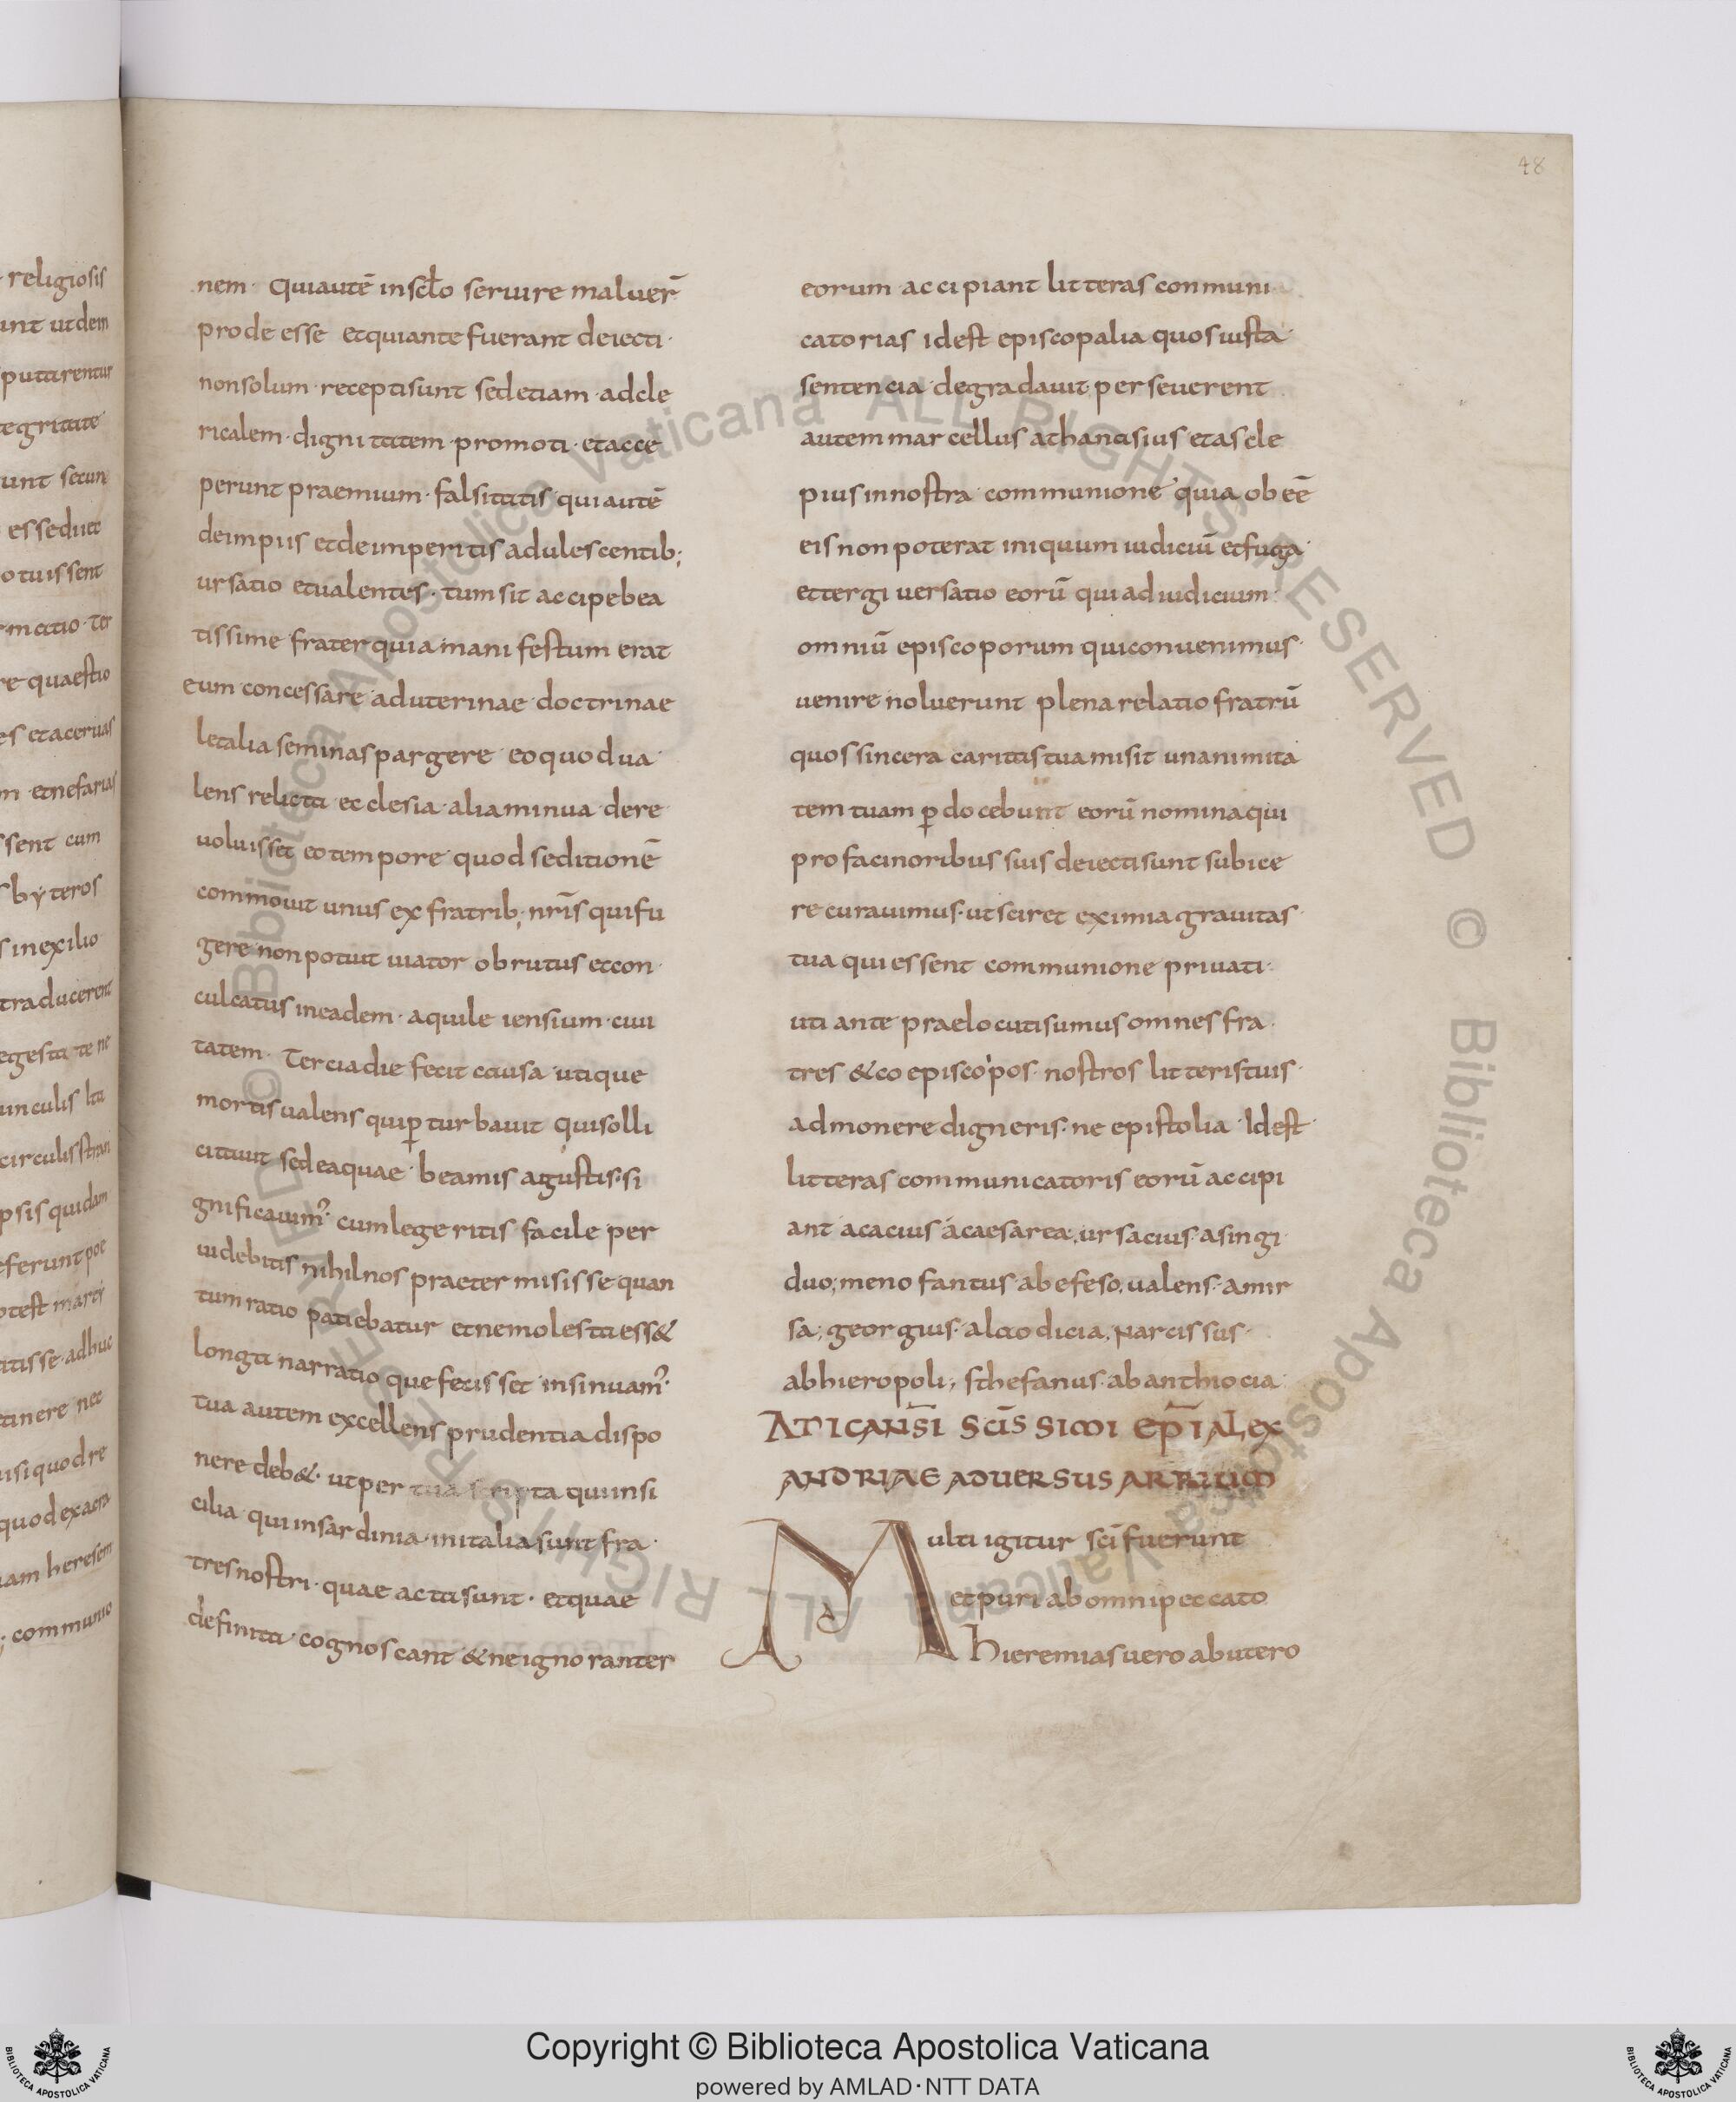 48
religiosis
unt utdem
putarentur
tegritate
unt secun
esseduct
otuissent
rmatio · ter
re quaestio
es etaceruas
m · etnefarias
ssent cum
sbyteros
s inexilio
traducerent
egesta te ne
unculis lta
circulis strani
psis quidam
eferunt poe
otest marti
atisse · adhuc
tinere nec
uisi quodre
quodexacra
iam heresem
; communio
nem · Quiautē insclo seruire maluer̄
prode esse etquiante fuerant deiecti ·
nonsolum · receptisunt sedetiam · adcle
ricalem · digni tatem · promoti · etacce
perunt praemium · falsitatis quiautē
deimpiis etdeimperitis adulescentib;
ursatio etualentes · tumsit accipebea
tissime frater quia mani festum erat
eum concessare aduterinae doctrinae
letalia seminas pargere eoquodua ·
lens relicta ecclesia · aliaminua dere ·
uoluisset eo tempore quod seditionē
commouit unus ex fratrib; nr̄is quifu
gere non potuit uiator obrutus etcon ·
culcatus ineadem · aquile iensium · ciui
tatem · Terciadie fecit causa utique
mortis ualens quip̱ turbauit quisolli
citauit sedeaquae beamis agustis · si
gnificauim᾽ · cumlegeritis facile per
uidebitis nihilnos praeter misisse quan
tum ratio patiebatur etnemolesta ess&
longa narratio que fecisset insinuam᾽ ·
tua autem excellens prudentia dispo
nere deb& · utper tua scripta quiinsi
cilia · quiinsardinia · initalia sunt fra ·
tres nostri · quae acta sunt · etquae
definita · cognoscant &neignoranter
eorum accipiant litteras conmuni
catorias idest episcopalia quosiusta ·
sentencia degradauit perseuerent
autem marcellus athanasius etascle
pius innostra communione quia obeē
eis non poterat iniquum iudiciū etfuga ·
ettergi uersatio eorū qui adiudicium ·
omniū episcoporum quiconuenimus ·
uenire noluerunt plena relatio fratrū
quos sincera caritas tua misit unanimita
tem tuam p̱docebunt eorū nominaqui
pro facinoribus suis deiectisunt subice
re curauimus · ut sciret eximia grauitas ·
tua qui essent communione priuati ·
uti ante praelocutisumus omnes fra ·
tres &coepiscopos nostros litteris tuis ·
admonere digneris · ne epistolia · Idest ·
litteras communicatoris eorū accipi
ant acacius ácaesarea; ursacius · asingi ·
duo; menofantus · abefeso; ualens · amir
sa; georgius · alaodicia; Narcissus ·
abhieropoli; sthefanus · abanthiocia ·
ATICANS̄I SC̄ISSIMI EP̄I ALEX
ANDRIAE ADUERSUS ARRIUM
Multi igitur sc̄i fuerunt
et puri abomnipeccato
Hieremias uero abutero
© Biblioteca Apostolica Vaticana ALL RIGHTS RESERVED
© Biblioteca Apostolica Vaticana ALL RIGHTS RESERVED
Copyright © Biblioteca Apostolica Vaticana
powered by AMLAD·NTT DATA
BIBLIOTECA APOSTOLICA VATICANA
BIBLIOTECA APOSTOLICA VATICANA